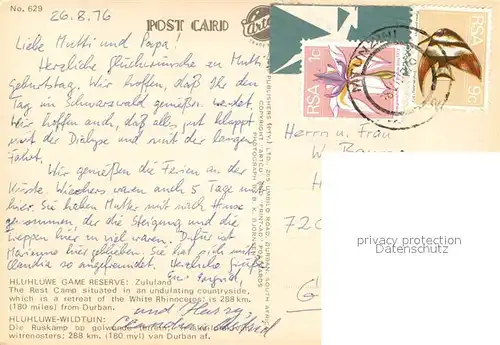 No. 629
26.8.76
POST CARD
Artco
Liebe Mutti und Papa!
Herzliche Glückwünsche zu Muttis
Geburtstag. Wir hoffen, daß Ihr den
Tag im Schwarzwald genießen werdet.
Wir hoffen auch, daß alles gut klappt
mit der Dialyse und mit der langen
Fahrt.
Wir genießen die Ferien an der
Küste. Wiechers waren auch 5 Tage mit
hier. Sie haben Mutter mit nach Hause
genommen, der die Steigung und die
Treppen hier zu viel waren. Dafür ist
Marianne hier geblieben. Sie hat sich mit
Claudia so angefreundet. Herzliche Grüße
Eure
und
HLUHLUWE GAME RESERVE: Zululand
The Rest Camp situated in an undulating countryside,
which is a retreat of the White Rhinoceros; is 288 km.
(180 miles) from Durban.
HLUHLUWE-WILDTUIN:
Die Ruskamp op golwende
witrenosters; 288 km. (180 myl) van Durban af.
RSA 1c
RSA 9c
Herrn u. Frau
W.
H
720
privacy protection
Datenschutz